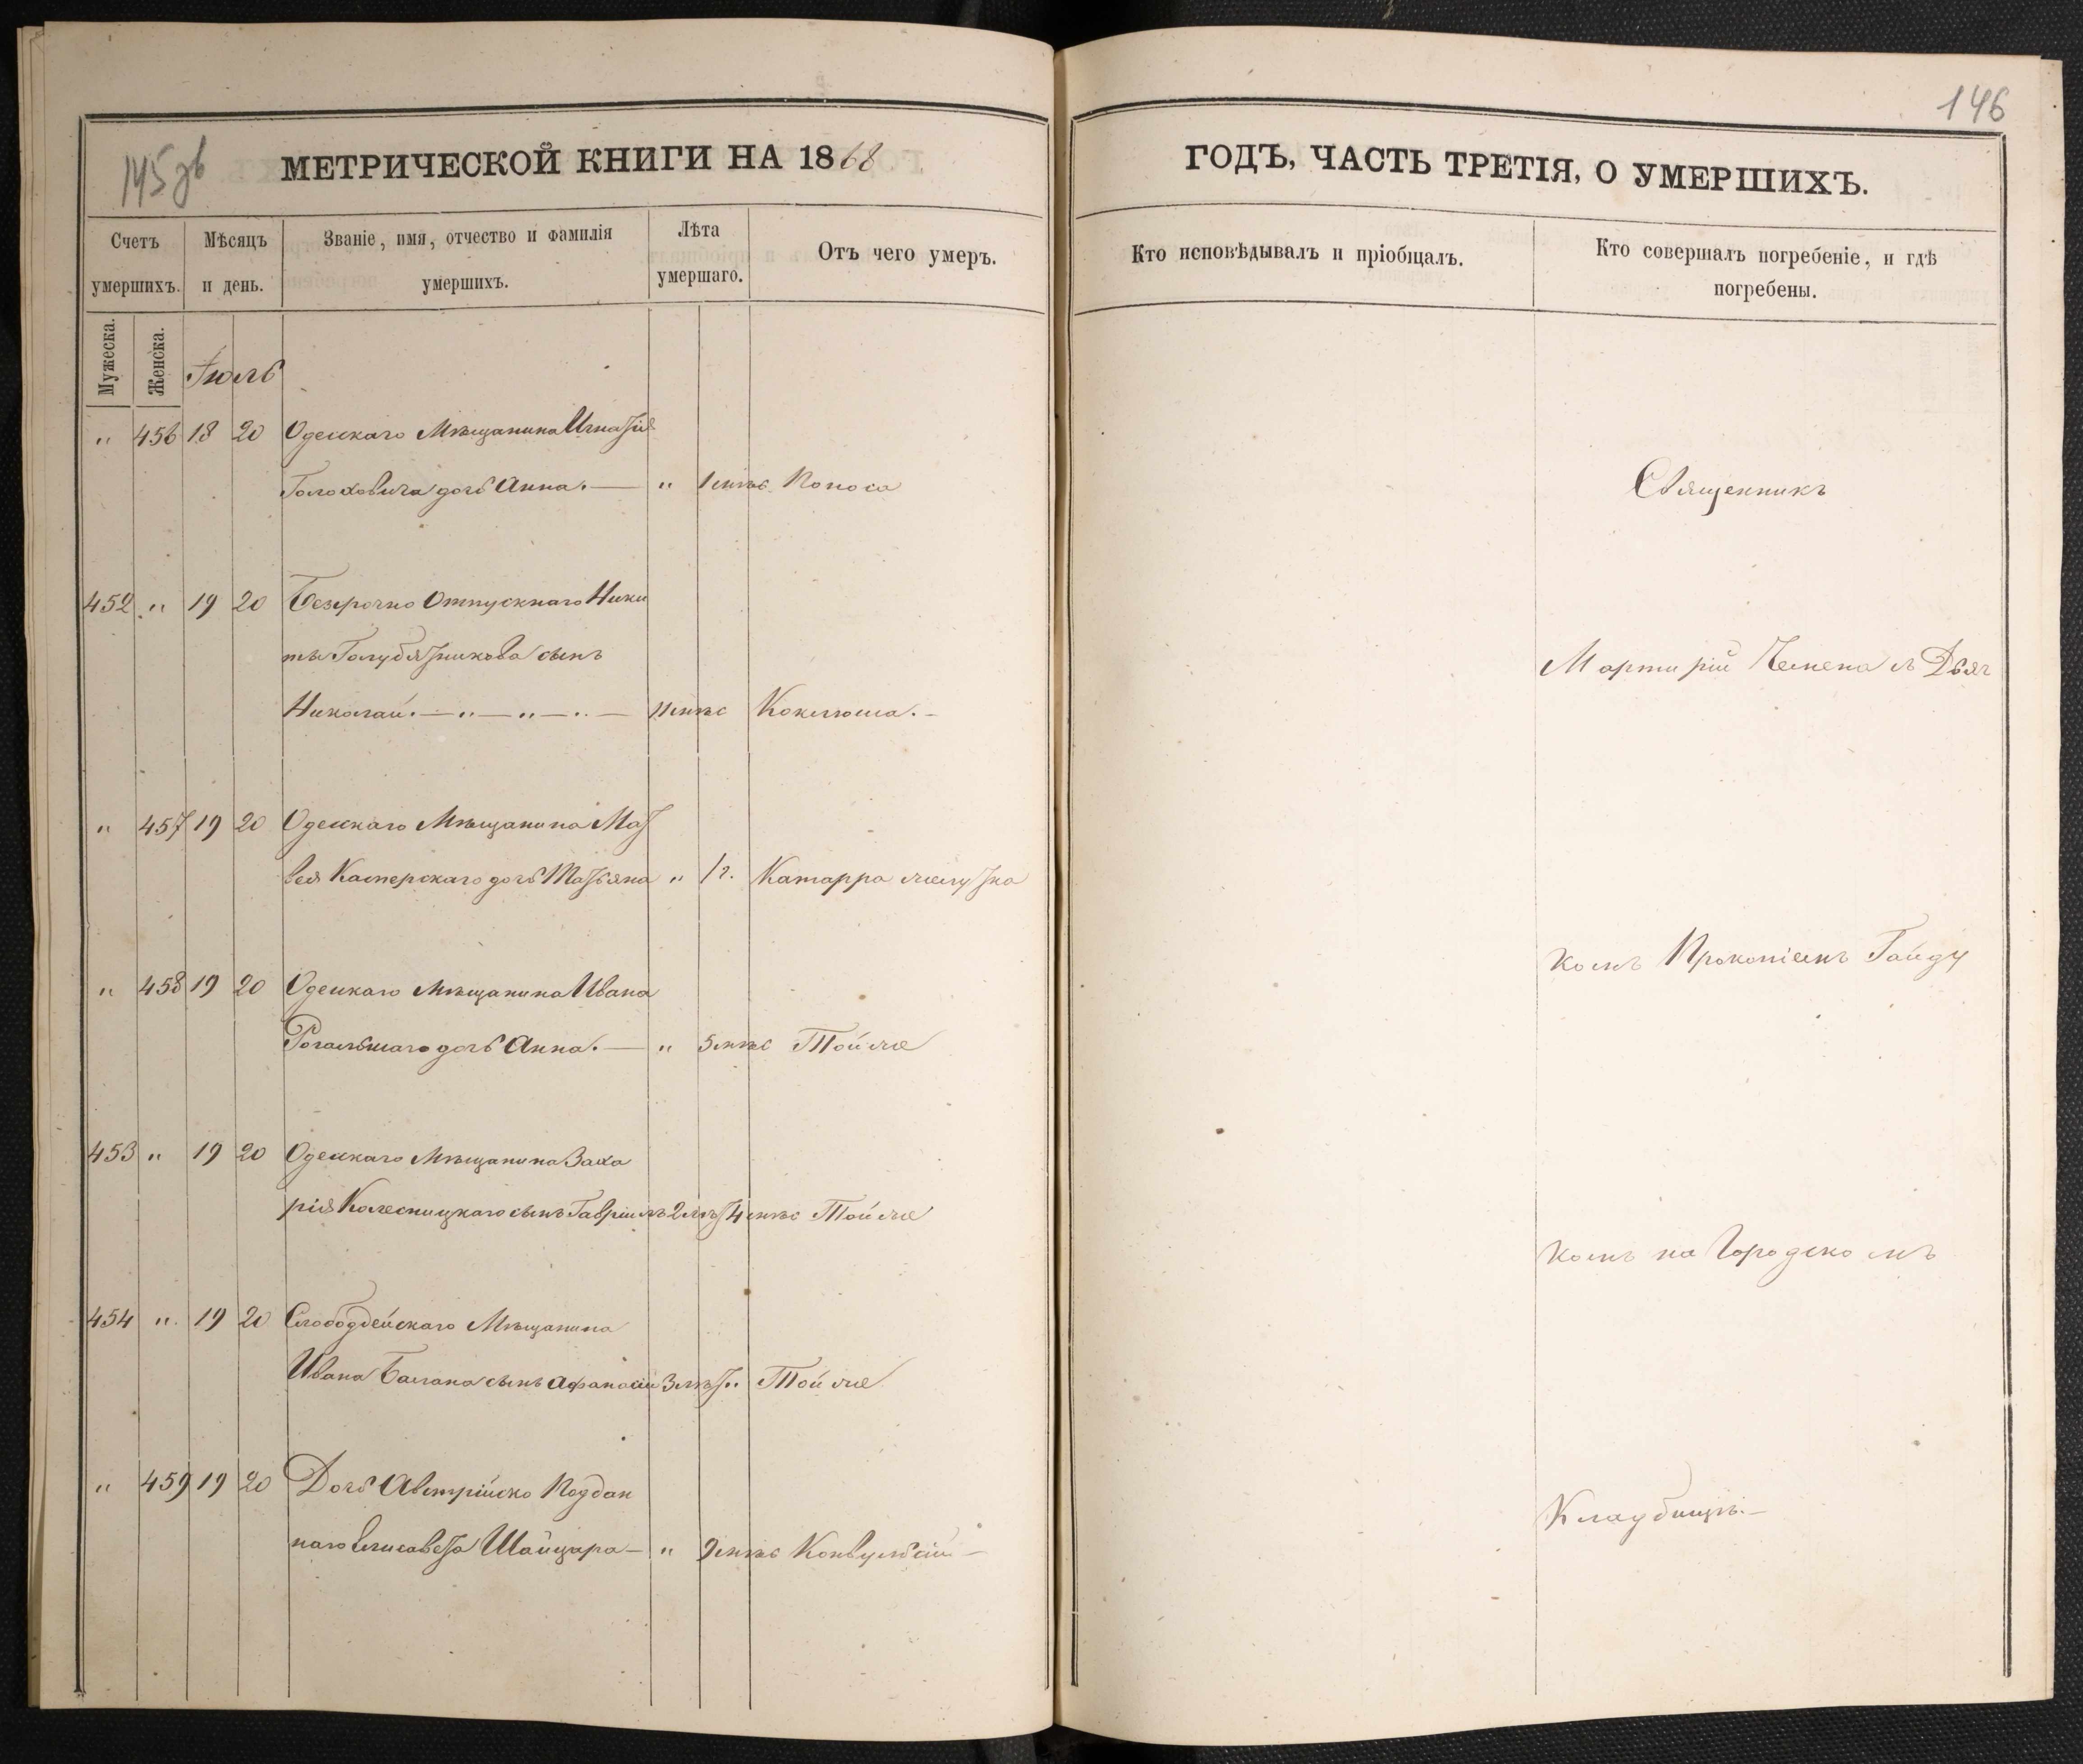 146
145 зв
МЕТРИЧЕСКОЙ КНИГИ НА 1868
ГОДЪ, ЧАСТЬ ТРЕТІЯ, О УМЕРШИХЪ.
Счетъ умершихъ.
Мѣсяцъ и день.
Званіе, имя, отчество и фамилія умершихъ.
Лѣта умершаго.
Отъ чего умеръ.
Кто исповѣдывалъ и пріобщалъ.
Кто совершалъ погребеніе, и гдѣ погребены.
Мужеска.
Женска.
Іюль
" 456 18 20 Одесскаго Мѣщанина Игнатія
Голоховича дочь Анна.— " 1 мѣс. Поноса
452 " 19 20 Безсрочно Отпускнаго Ники
ты Голубятникова сынъ
Николай.—"—"—"— 11 мѣс Коклюша.—
" 457 19 20 Одесскаго Мѣщанина Мат
вея Касперскаго дочь Татьяна " 1 г. Катарра желутка
" 458 19 20 Одесскаго Мѣщанина Ивана
дочь Анна.— " 5 мѣс Той же
453 " 19 20 Одесскаго Мѣщанина Заха
рія Колесницкаго сынъ Гавріилъ 2 лѣт 4 мѣс Той же
454 " 19 20 Слободзейскаго Мѣщанина
Ивана Балана сынъ Афанасій 3 лѣт " Той же
" 459 19 20 Дочь Австрійско Поддан
наго Елисавета Шайцара— " 9 мѣс Конвульсій—
Священникъ
Мартирій Чемена съ Дьяч
комъ Прокопіемъ Гайду
комъ на Городскомъ
Кладбищѣ.—